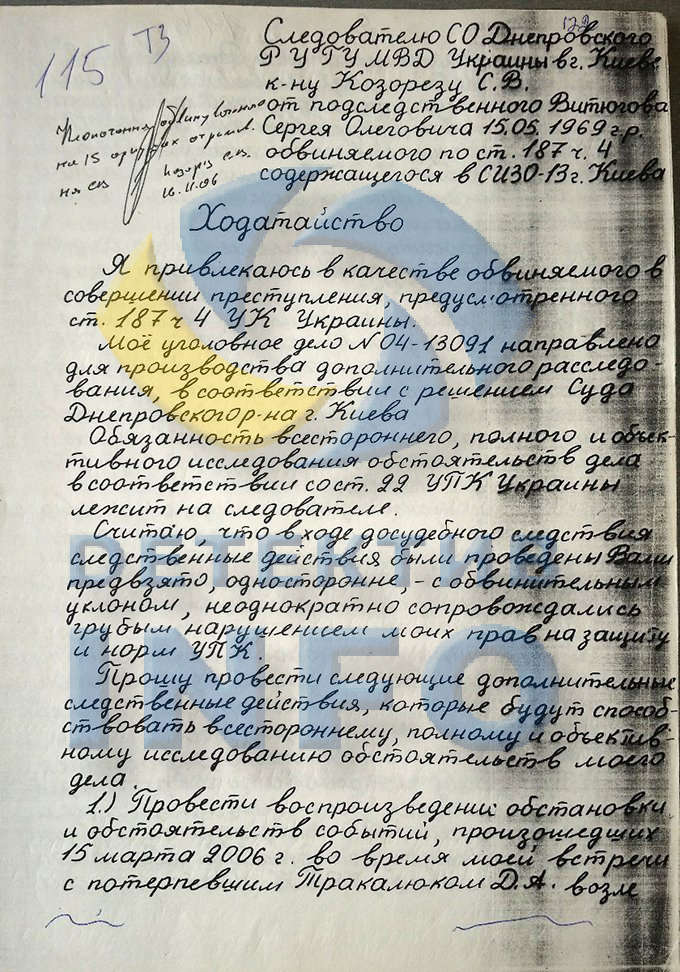 115 ТЗ
122
Следователю СО Днепровского
РУГУМВД Украины в г. Киеве
к-ну Козорезу С.В.
от подследственного Витюгова
Сергея Олеговича 15.05.1969 г.р.
обвиняемого по ст. 187 ч. 4
содержащегося в СИЗО-13 г. Киева
на 15
16.11.06
Ходатайство
Я привлекаюсь в качестве обвиняемого в
совершении преступления, предусмотренного
ст. 187 ч 4 УК Украины.
Моё уголовное дело N 04-13091 направлено
для производства дополнительного расследо-
вания, в соответствии с решением Суда
Днепровского р-на г. Киева
Обязанность всестороннего, полного и объек-
тивного исследования обстоятельств дела
в соответствии со ст. 22 УПК Украины
лежит на следователе.
Считаю, что в ходе досудебного следствия
следственные действия были проведены Вами
предвзято, односторонне, - с обвинительным
уклоном, неоднократно сопровождались
грубым нарушением моих прав на защиту
и норм УПК.
Прошу провести следующие дополнительные
следственные действия, которые будут способ-
ствовать всестороннему, полному и объектив-
ному исследованию обстоятельств моего
дела.
1.) Провести воспроизведении обстановки
и обстоятельств событий, произошедших
15 марта 2006 г. во время моей встречи
с потерпевшим Тракалюком Д.А. возле
INFO